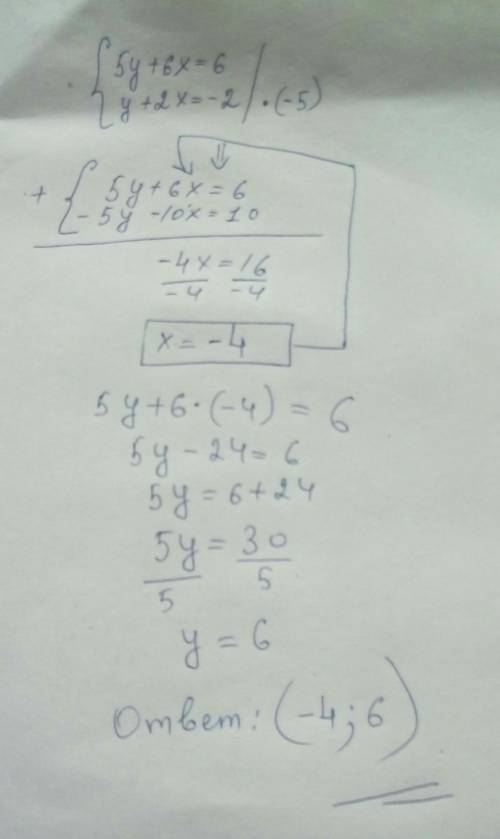 5y+6x=6
y+2x=-2 | ·(-5)
+ 5y+6x=6
-5y -10x=10
-4x=16
-4 -4
x=-4
5y+6·(-4)=6
5y-24=6
5y=6+24
5y=30
5 5
y=6
Ответ: (-4;6)